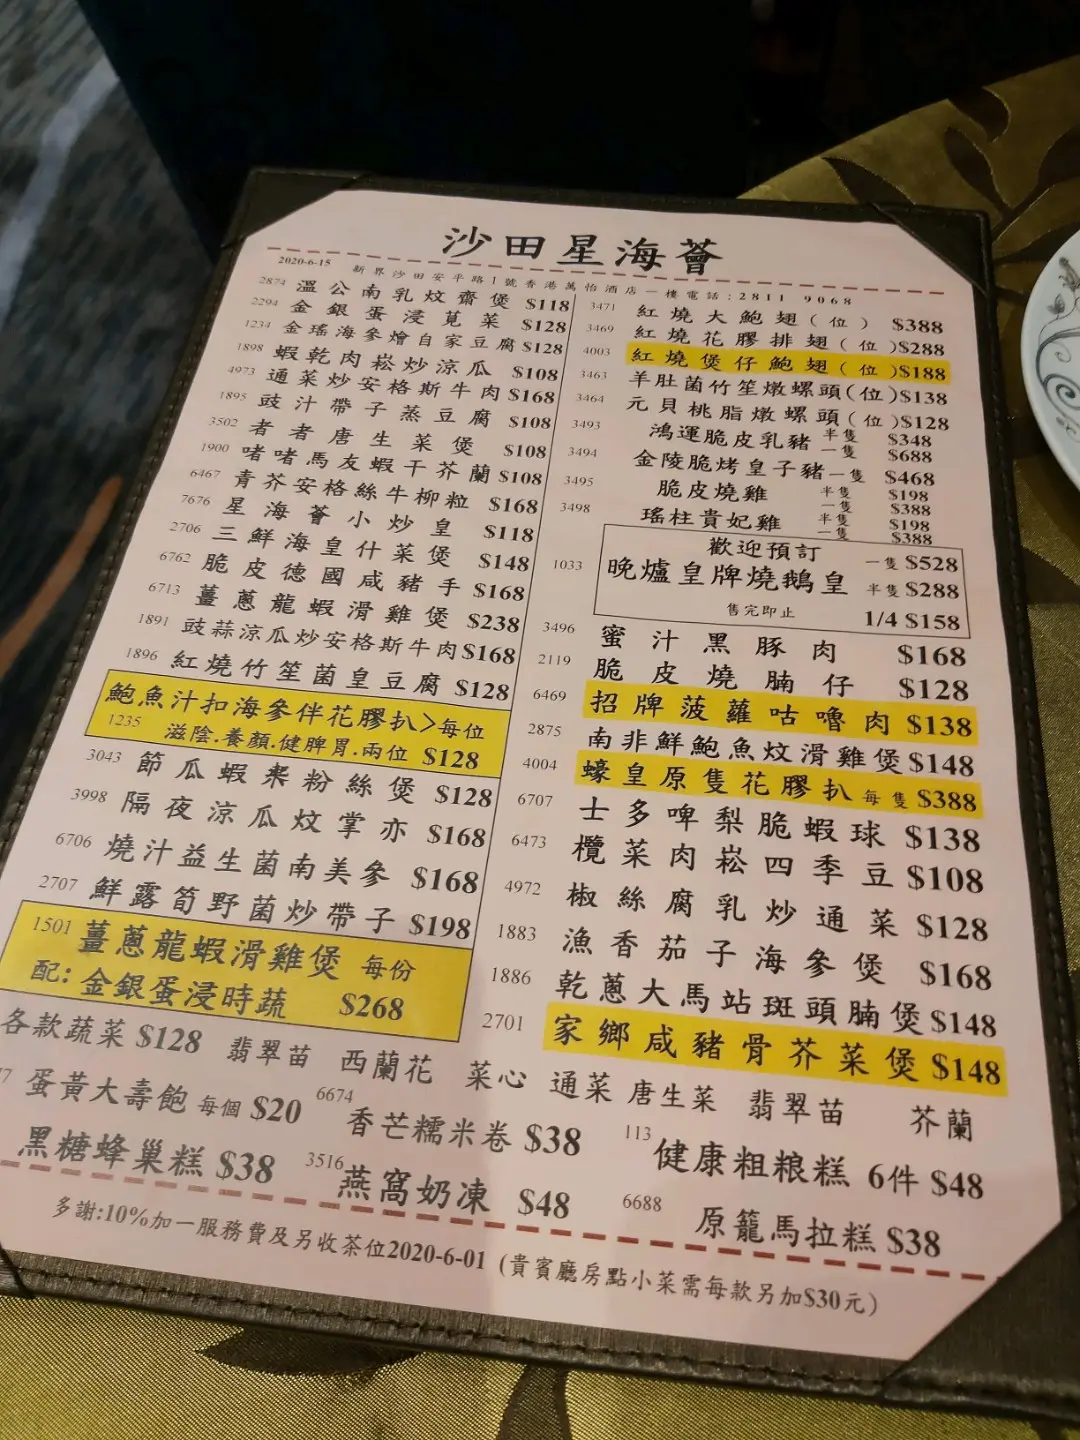 沙田星海薈
2020-6-15 新界沙田安平路1號香港萬怡酒店一樓電話:2811 9068
2874 溫公南乳炆齋煲 $118
2294 金銀蛋浸莧菜 $128
1234 金瑤海參燴自家豆腐 $128
1898 蝦乾肉崧炒涼瓜 $108
4973 通菜炒安格斯牛肉 $168
1895 豉汁帶子蒸豆腐 $108
3502 者者唐生菜煲 $108
1900 啫啫馬友蝦干芥蘭 $108
6467 青芥安格絲牛柳粒 $168
7676 星海薈小炒皇 $118
2706 三鮮海皇什菜煲 $148
6762 脆皮德國咸豬手 $168
6713 薑蔥龍蝦滑雞煲 $238
1891 豉蒜涼瓜炒安格斯牛肉 $168
1896 紅燒竹笙菌皇豆腐 $128
鮑魚汁扣海參伴花膠扒>每位
1235 滋陰.養顏.健脾胃.兩位 $128
3043 節瓜蝦米粉絲煲 $128
3998 隔夜涼瓜炆掌亦 $168
6706 燒汁益生菌南美參 $168
2707 鮮露筍野菌炒帶子 $198
1501 薑蔥龍蝦滑雞煲 每份
配:金銀蛋浸時蔬 $268
3471 紅燒大鮑翅(位) $388
3469 紅燒花膠排翅(位) $288
4003 紅燒煲仔鮑翅(位) $188
3463 羊肚菌竹笙燉螺頭(位) $138
3464 元貝桃脂燉螺頭(位) $128
3493 鴻運脆皮乳豬 半隻 $348
一隻 $688
3494 金陵脆烤皇子豬 一隻 $468
3495 脆皮燒雞 半隻 $198
一隻 $388
3498 瑤柱貴妃雞 半隻 $198
一隻 $388
歡迎預訂 一隻 $528
1033 晚爐皇牌燒鵝皇 半隻 $288
售完即止 1/4 $158
3496 蜜汁黑豚肉 $168
2119 脆皮燒腩仔 $128
6469 招牌菠蘿咕嚕肉 $138
2875 南非鮮鮑魚炆滑雞煲 $148
4004 蠔皇原隻花膠扒 每隻 $388
6707 士多啤梨脆蝦球 $138
6473 欖菜肉崧四季豆 $108
4972 椒絲腐乳炒通菜 $128
1883 漁香茄子海參煲 $168
1886 乾蔥大馬站斑頭腩煲 $148
2701 家鄉咸豬骨芥菜煲 $148
各款蔬菜 $128 翡翠苗 西蘭花 菜心 通菜 唐生菜 翡翠苗 芥蘭
蛋黃大壽飽 每個 $20 6674 香芒糯米卷 $38 113 健康粗粮糕 6件 $48
黑糖蜂巢糕 $38 3516 燕窩奶凍 $48 6688 原籠馬拉糕 $38
多謝:10%加一服務費及另收茶位2020-6-01 (貴賓廳房點小菜需每款另加$30元)